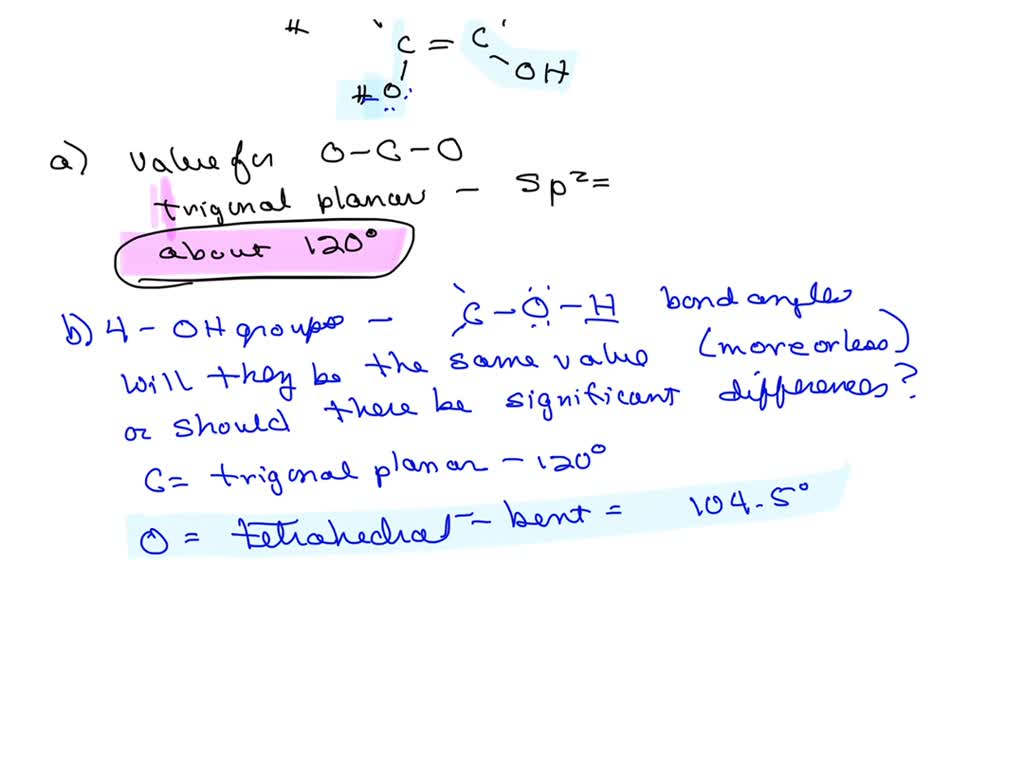 H
C = C
OH
HO
a) value for O-C-O
trigonal planar - sp²=
about 120°
b) 4 - OH groups - C-O-H bond angles
will they be the same value (more or less)
or should there be significant differences?
C= trigonal planar - 120°
O = tetrahedral - bent = 104.5°